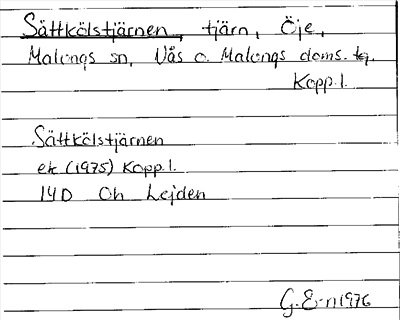 Sättkölstjärnen, tjärn, Öje,
Malungs sn, Nås o. Malungs doms. tg.
Kopp. l.
Sättkölstjärnen
ek (1975) Kopp. l.
14D Oh Lejden
G. E-n 1976